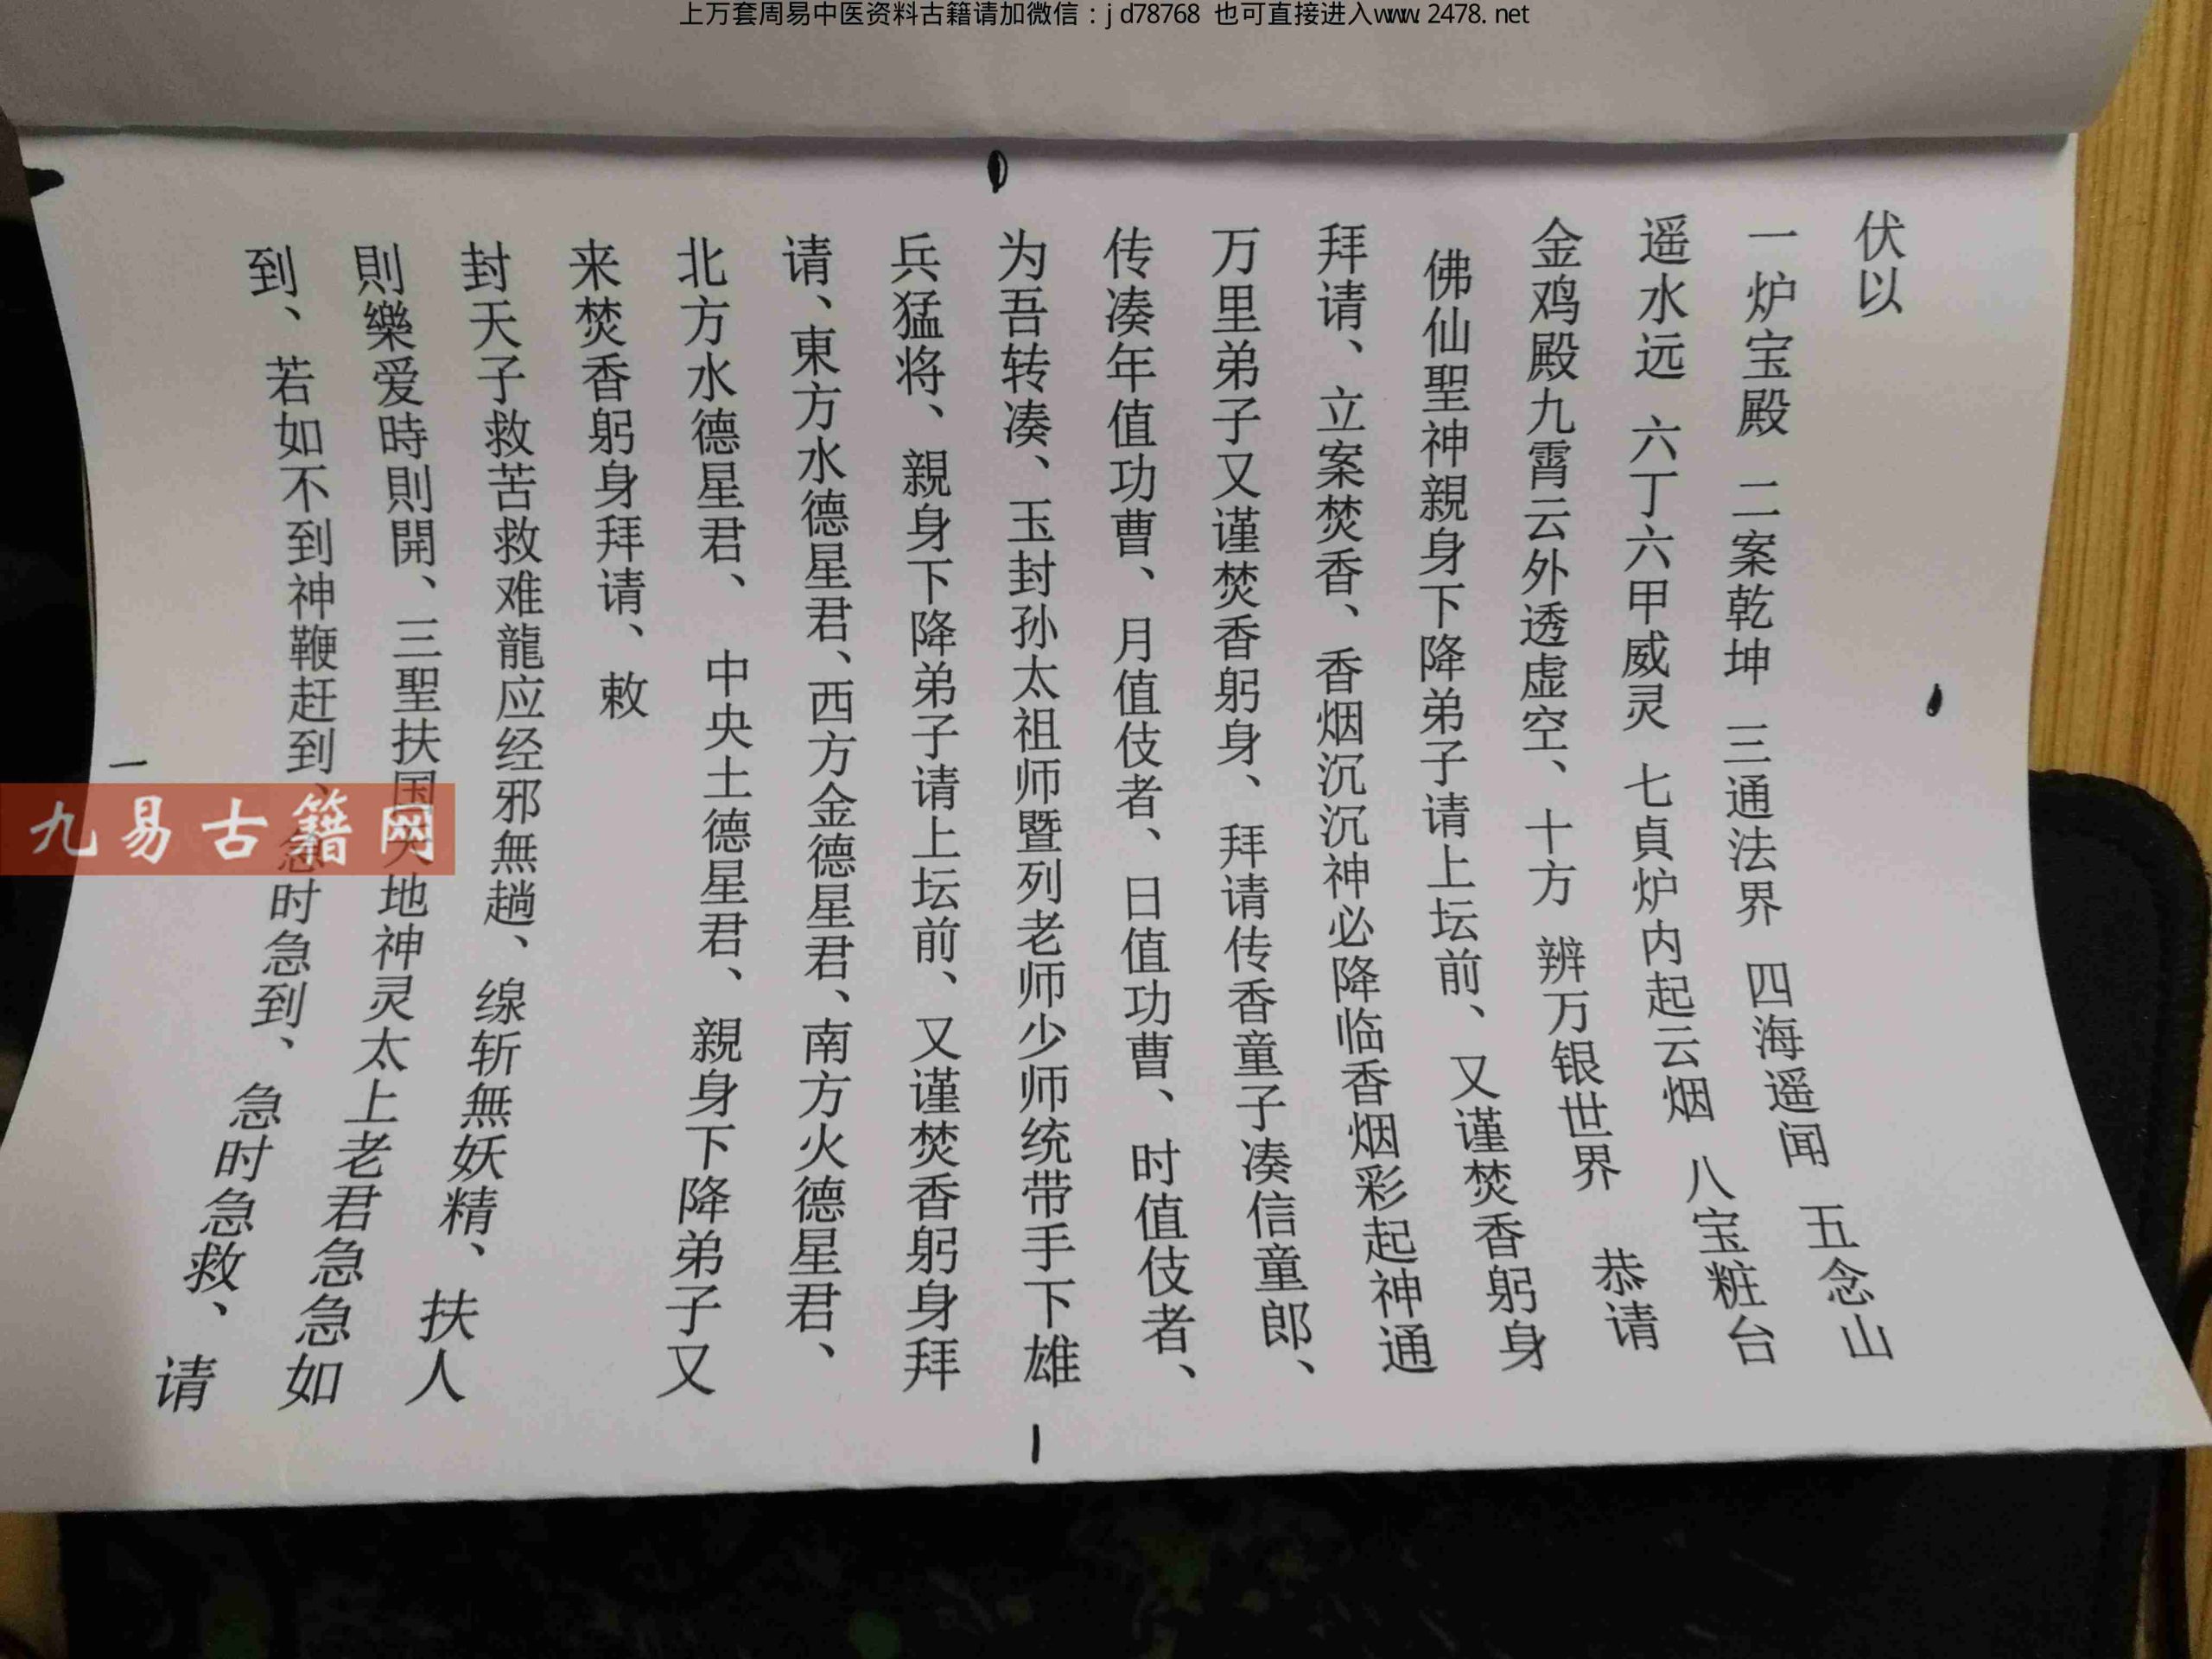 上万套周易中医资料古籍请加微信：jd78768 也可直接进入www.2478.net
伏以
一炉宝殿 二案乾坤 三通法界 四海遥闻 五念山
遥水远 六丁六甲威灵 七貞炉内起云烟 八宝粧台
金鸡殿九霄云外透虚空、十方 辨万银世界 恭请
佛仙聖神親身下降弟子请上坛前、又谨焚香躬身
拜请、立案焚香、香烟沉沉神必降临香烟彩起神通
万里弟子又谨焚香躬身、拜请传香童子凑信童郎、
传凑年值功曹、月值伎者、日值功曹、时值伎者、
为吾转凑、玉封孙太祖师暨列老师少师统带手下雄
兵猛将、親身下降弟子请上坛前、又谨焚香躬身拜
请、東方水德星君、西方金德星君、南方火德星君、
北方水德星君、中央土德星君、親身下降弟子又
来焚香躬身拜请、敕
封天子救苦救难龍应经邪無趟、缐斩無妖精、扶人
則樂爱時則開、三聖扶国天地神灵太上老君急急如
到、若如不到神鞭赶到、急时急到、急时急救、请
一
九易古籍网